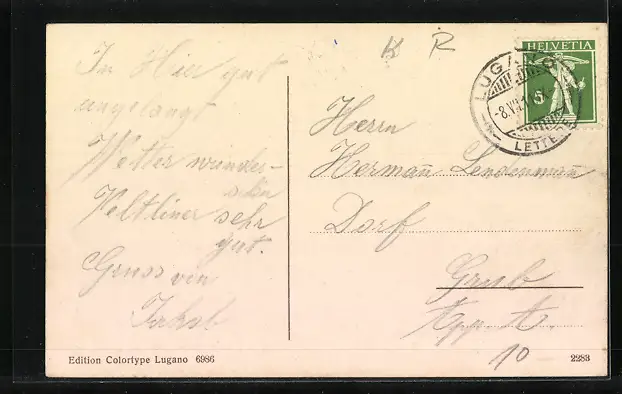 In Hier gut
angelangt
Wetter wunder-
schön
Veltliner sehr
gut.
Gruss von
Jakob
K R
HELVETIA
5
LUGANO
LETTERE
Herrn
Hermañ Lendenmañ
Dorf
Grub
App. A.
10
Edition Colortype Lugano 6986
2283